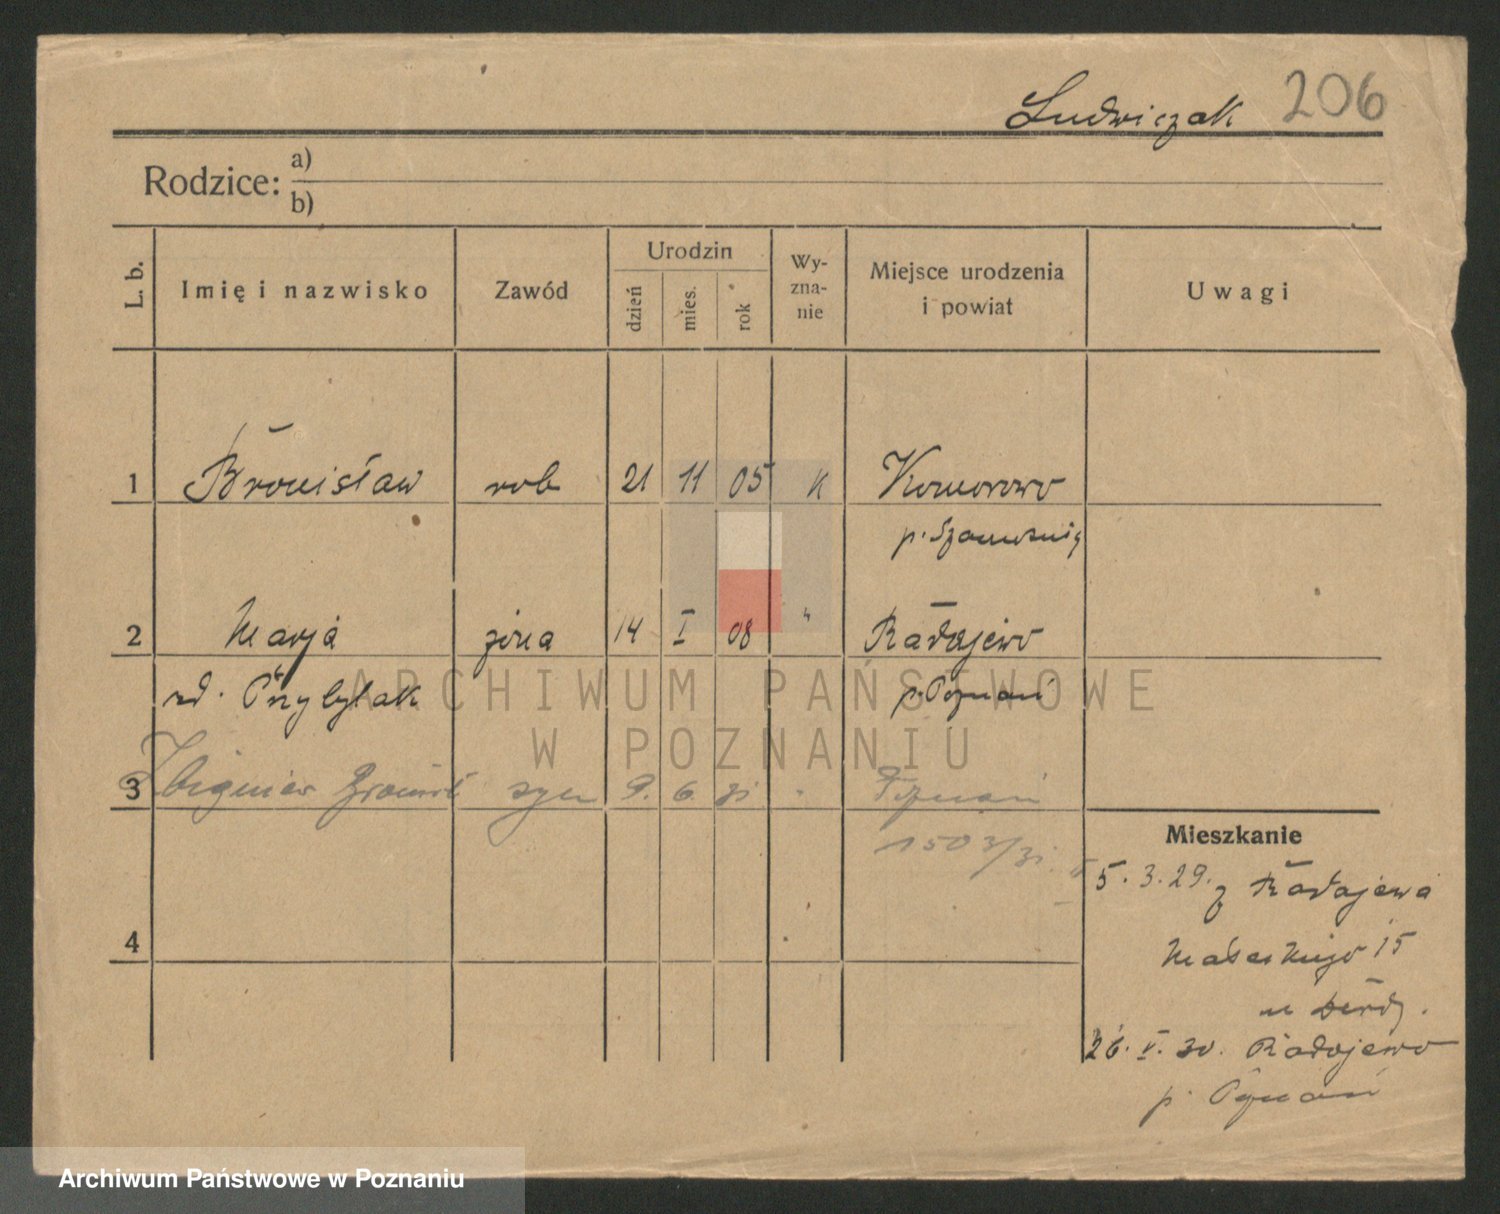 Ludwiczak 206
Rodzice: a)
b)
L. b. Imię i nazwisko Zawód Urodzin dzień mies. rok Wy-zna-nie Miejsce urodzenia i powiat Uwagi
1 Bronisław rob 21 11 05 k Komorowo
p. Szamotuły
2 Marja żona 14 I 08 " Radojewo
rd. Przybylak p. Poznań
ARCHIWUM PAŃSTWOWE
W POZNANIU
3 Zbigniew syn 9. 6. 31 " Poznań
1503/31.
Mieszkanie
5.3.29. z Radojewa
15
4
u
26. V. 30. Radojewo
p. Poznań
Archiwum Państwowe w Poznaniu